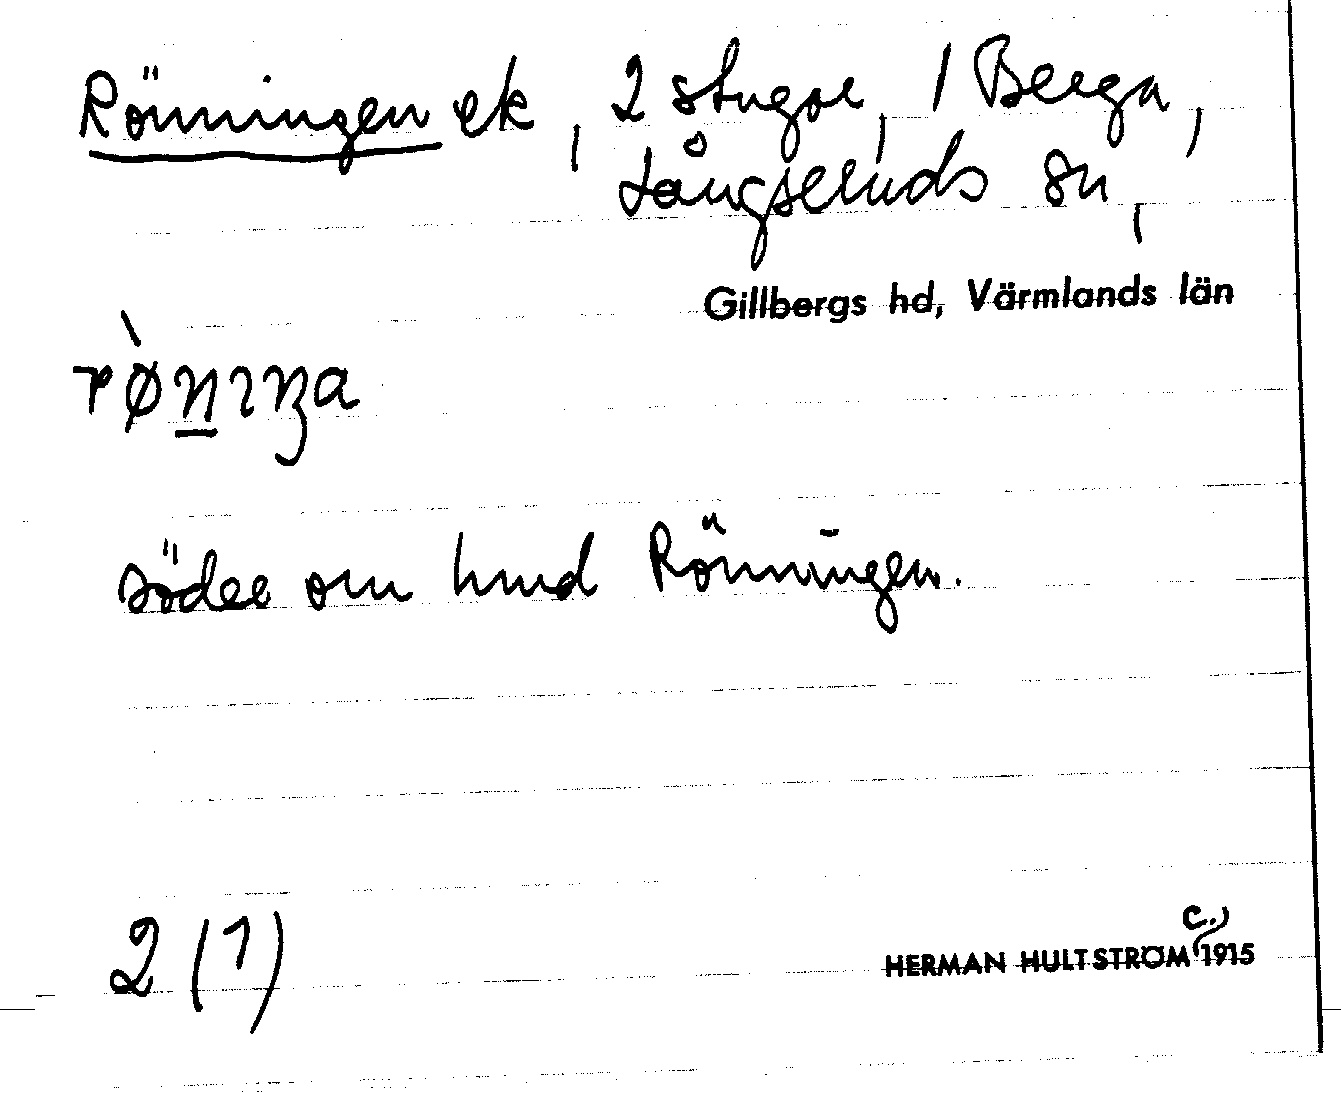 Rönningen ek, 2 stugor, 1 Berga,
Långseruds sn,
Gillbergs hd, Värmlands län
söder om hmd Rönningen.
2 (1)
HERMAN HULTSTRÖM c. 1915